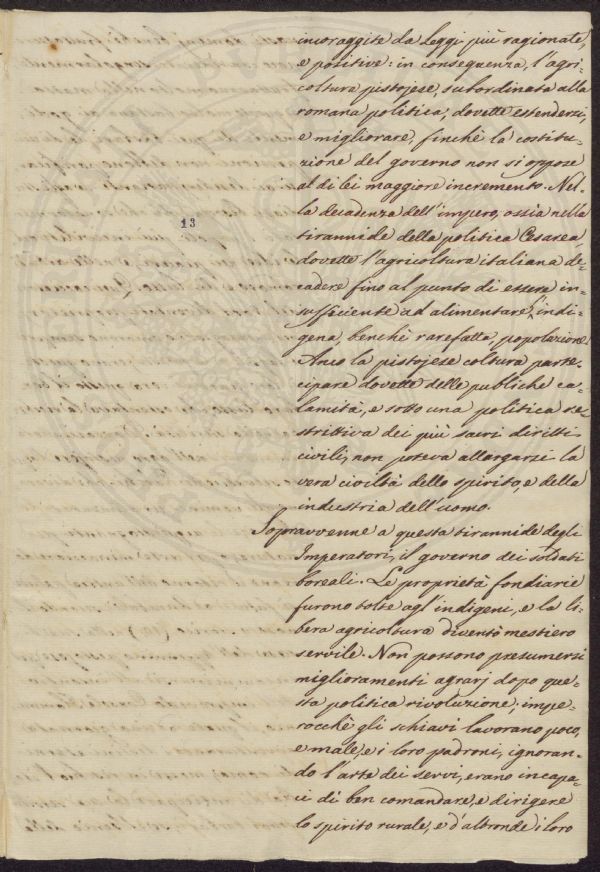 incoraggite da Leggi più ragionate,
e positive: in conseguenza, l'agri-
coltura pistojese, subordinata alla
romana politica, dovette estendersi,
e migliorare, finchè la costitu-
zione del governo non si oppose
al di lei maggiore incremento. Nel-
la decadenza dell'impero, ossia nella
tirannide della politica Cesarea,
dovette l'agricoltura italiana de-
cadere fino al punto di essere in-
sufficiente ad alimentare l'indi-
gena, benchè rarefatta, popolazione.
Anco la pistojese coltura parte-
cipare dovette delle publiche ca-
lamità, e sotto una politica re-
strittiva dei più sacri diritti
civili, non poteva allargarsi la
vera civiltà dello spirito, e della
industria dell'uomo.
Sopravvenne a questa tirannide degli
Imperatori, il governo dei soldati
boreali. Le proprietà fondiarie
furono tolte agl'indigeni, e la li-
bera agricoltura diventò mestiero
servile. Non possono presumersi
miglioramenti agrarj dopo que-
sta politica rivoluzione; impe-
rocchè gli schiavi lavorano poco,
e male, e i loro padroni, ignoran-
do l'arte dei servi, erano incapa-
ci di ben comandare, e dirigere
lo spirito rurale, e d'altronde i loro
13